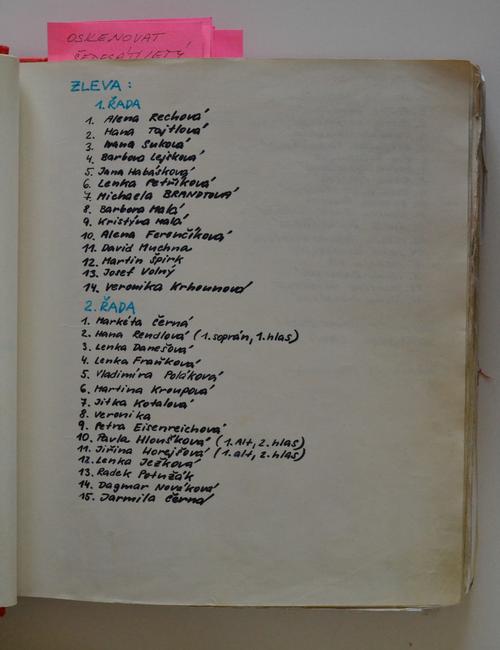 OSKENOVAT
ZLEVA:
1. ŘADA
1. Alena Rechová
2. Hana Tajtlová
3. Ivana Suková
4. Barbora Lejsková
5. Jana Habásková
6. Lenka Petříková
7. Michaela BRANDTOVÁ
8. Barbora Malá
9. Kristýna Malá
10. Alena Ferenčíková
11. David Muchna
12. Martin Špirk
13. Josef Volný
14. Veronika Krhounová
2. ŘADA
1. Markéta Černá
2. Hana Rendlová (1. soprán, 1. hlas)
3. Lenka Danešová
4. Lenka Fraňková
5. Vladimíra Poláková
6. Martina Kroupová
7. Jitka Kotalová
8. Veronika
9. Petra Eisenreichová
10. Pavla Hloušková (1. Alt, 2. hlas)
11. Jiřina Horejšová (1. alt, 2. hlas)
12. Lenka Ježková
13. Radek Potužák
14. Dagmar Nováková
15. Jarmila Černá